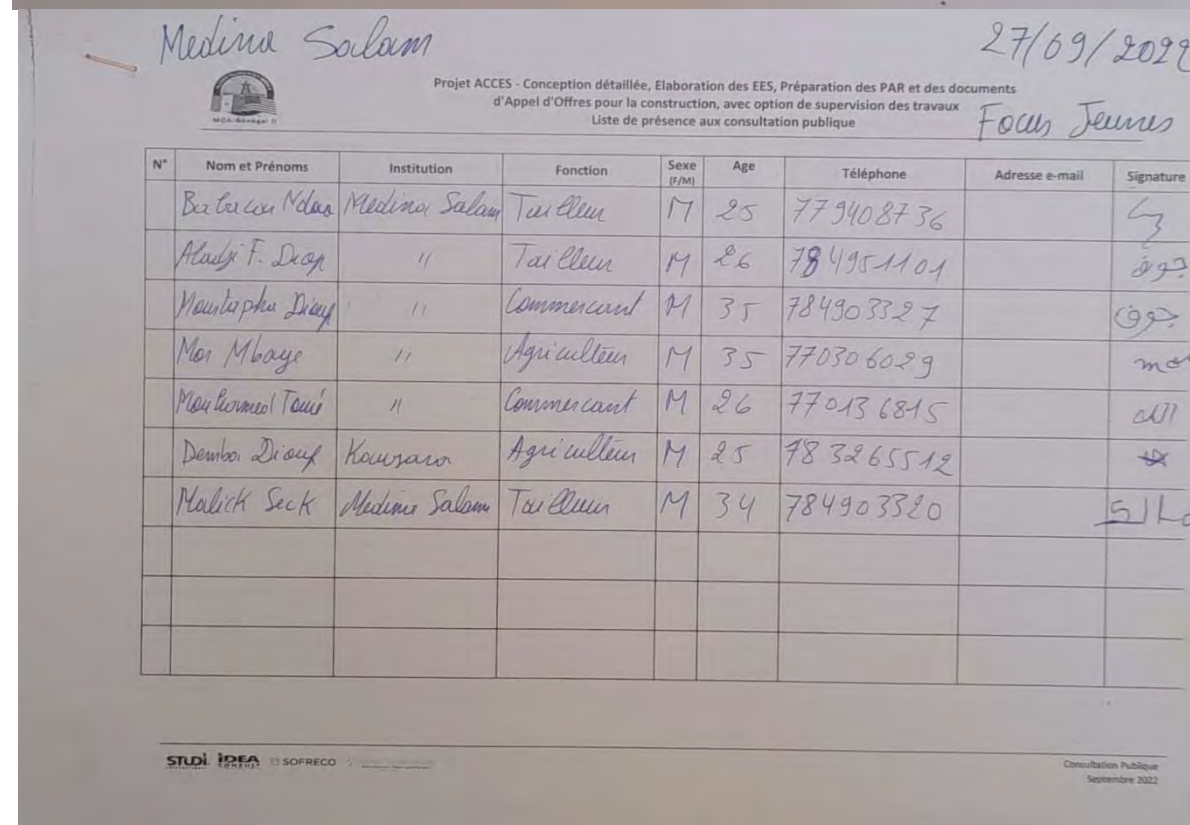 Medina Salam 27/09/2022
MCA-Sénégal II
Projet ACCES - Conception détaillée, Elaboration des EES, Préparation des PAR et des documents
d'Appel d'Offres pour la construction, avec option de supervision des travaux
Liste de présence aux consultation publique
Focus Jeunes
N° Nom et Prénoms Institution Fonction Sexe (F/M) Age Téléphone Adresse e-mail Signature
Babacar Ndao Medina Salam Tailleur M 25 779408736
Aladji F. Diop " Tailleur M 26 784951101 جوف
Moustapha Diouf " Commercant M 35 784903327 جوف
Mor Mbaye " Agriculteur M 35 770306029
Mouhamed " Commercant M 26 770136815
Demba Diouf Agriculteur M 25 783265512
Malick Seck Medina Salam Tailleur M 34 784903320
STUDI IDEA CONSULT SOFRECO
Consultation Publique
Septembre 2022